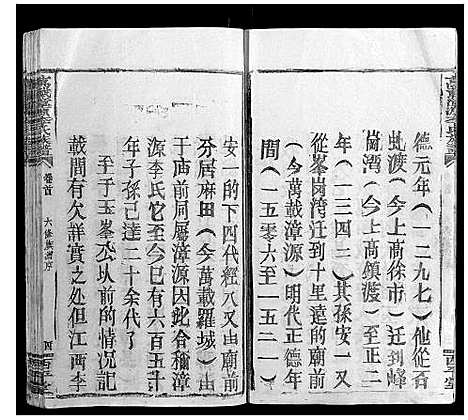 德元年(一二九七)他從
虬渡(今上高徐市)迁到峰
崗湾(今上高鎮渡)至正二
年(一三四二)其孫安一又
從峯崗湾迁到十里遠的廟前
(今萬載漳源)明代正德年
間(一五〇六至一五二一)
安一的下四代經八又由廟前
分居麻田(今萬載羅城)由
于庙前同屬漳源因此合稱漳
源李氏它至今已有六百五十
年子孫已達二十余代了
至于玉峯公以前的情况記
載間有欠祥實之处但江西李
萬載漳源李氏族譜
卷首
六修族譜序
四
西平堂